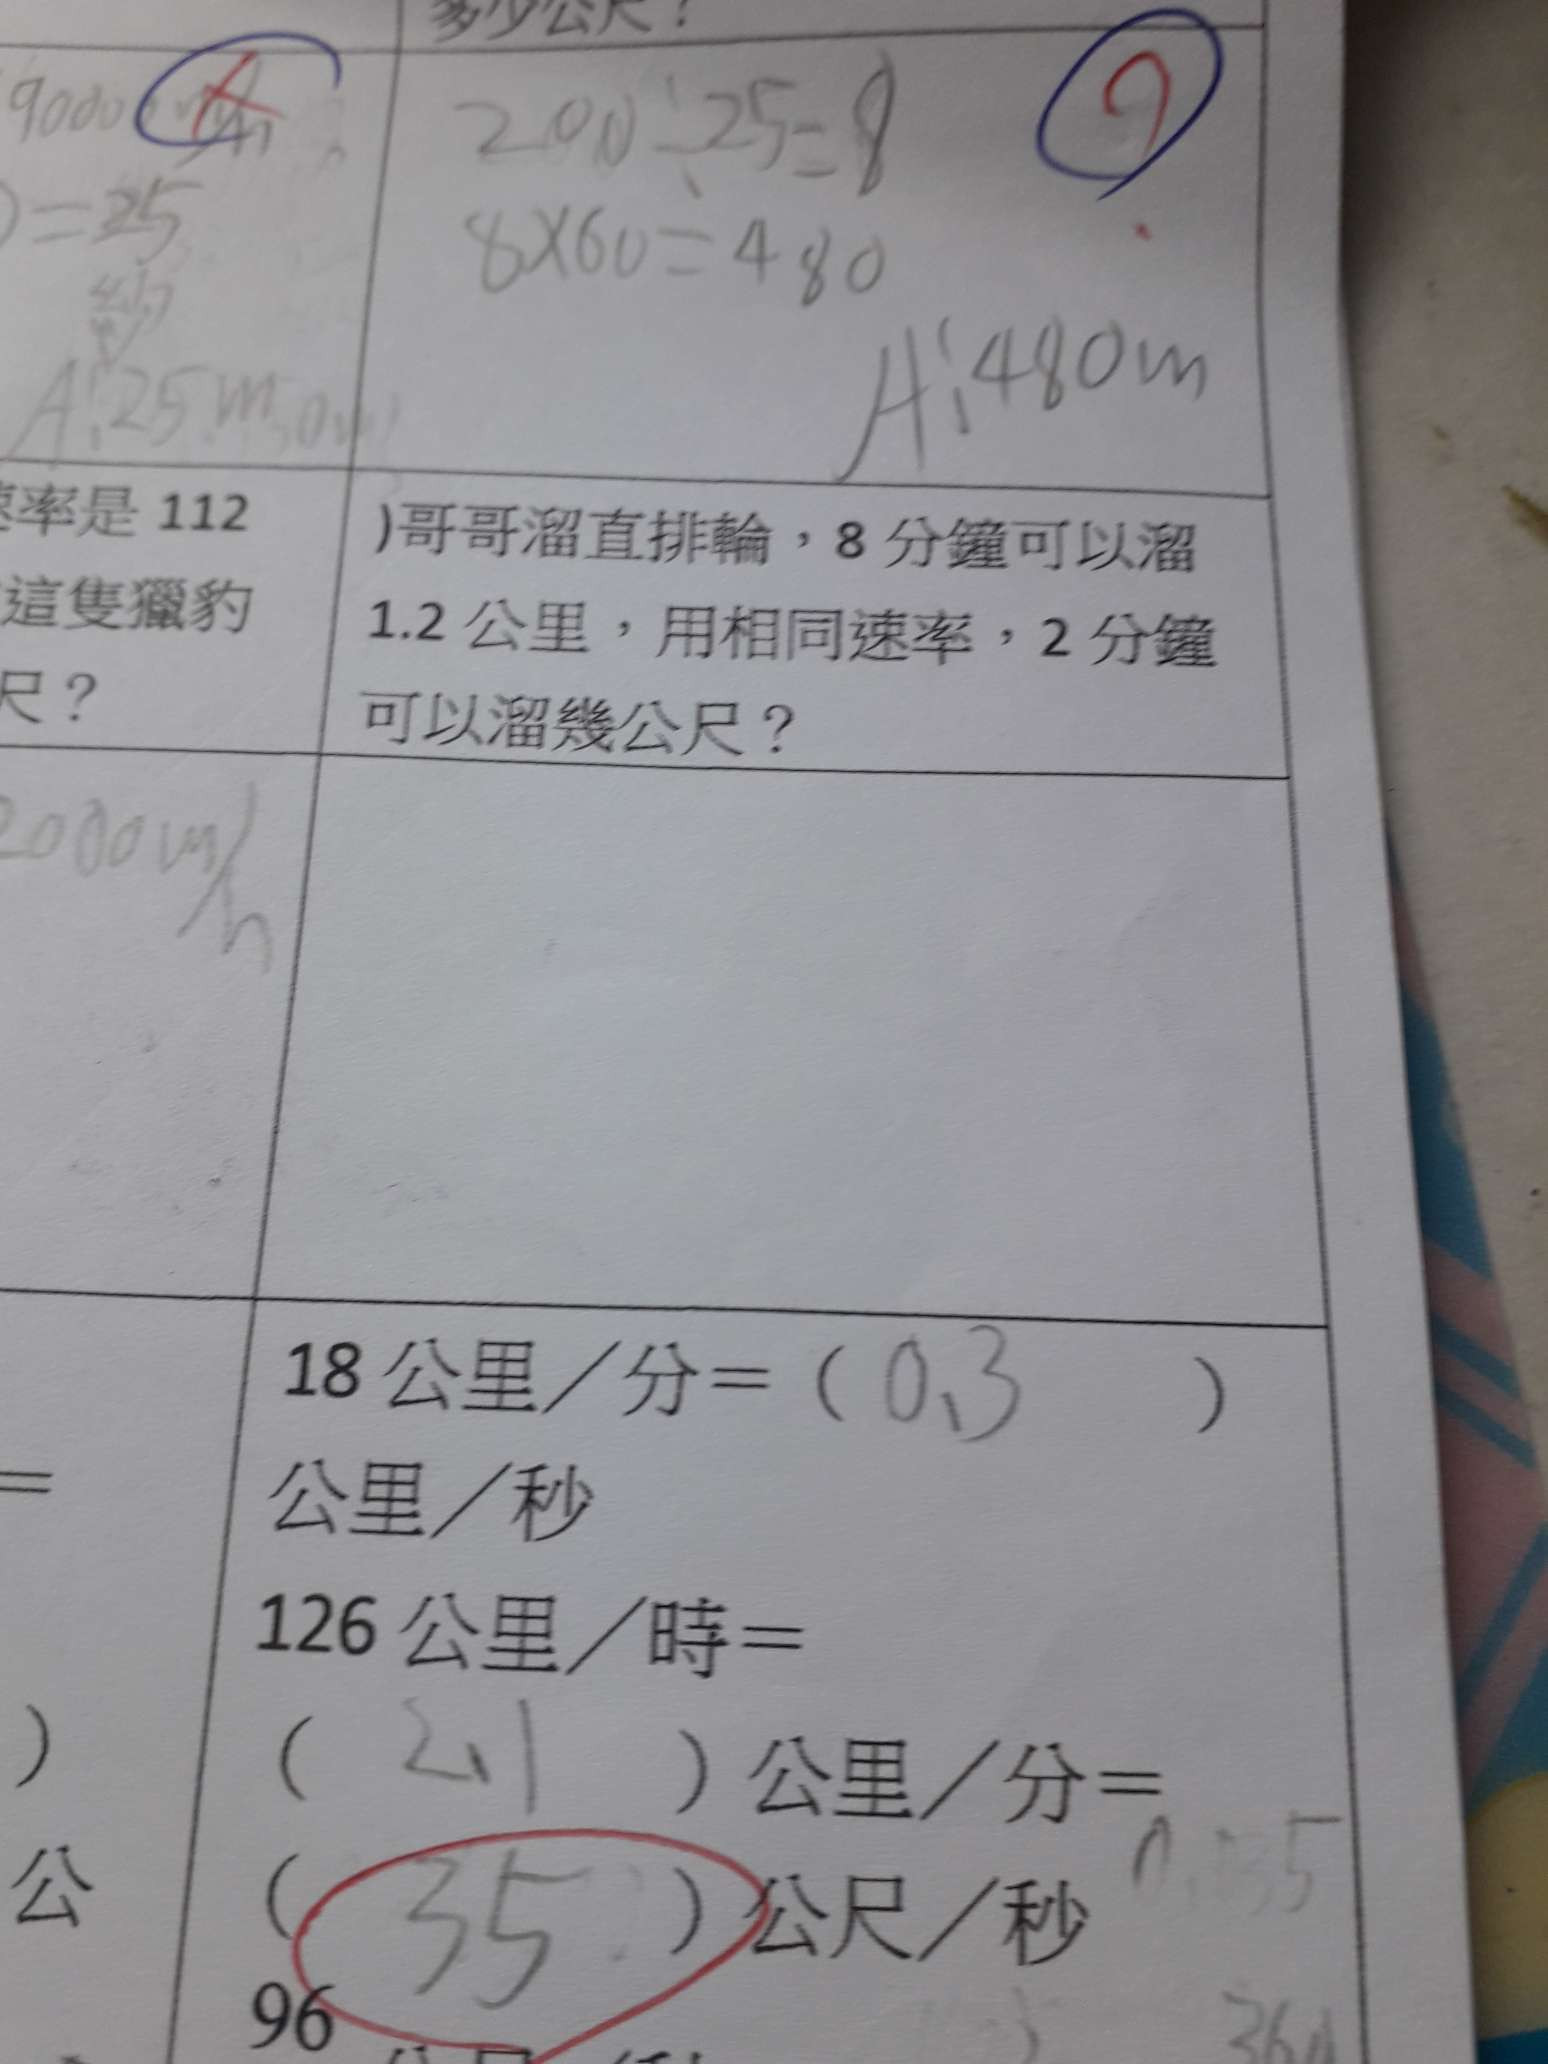 多少公尺？
9000
200÷25=8
?
=25
8×60=480
秒
A:25m
A:480m
速率是 112
這隻獵豹
尺？
)哥哥溜直排輪，8 分鐘可以溜
1.2 公里，用相同速率，2 分鐘
可以溜幾公尺？
2000m/h
18 公里／分＝（ 0.3 ）
公里／秒
＝
126 公里／時＝
）
（ 2.1 ）公里／分＝
公
（ 35 ）公尺／秒
0.035
96
360